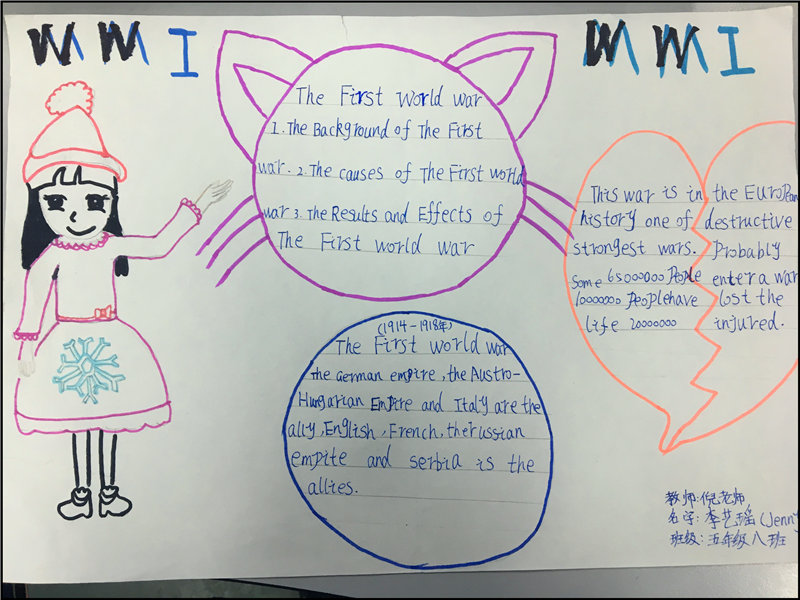 WW I
WW I
The First World war
1. The Background of The First
war. 2. The causes of The First world
war 3. The Results and Effects of
The First world war
This war is in the European
history one of destructive
strongest wars. Probably
Some 65000000 People enter a war
10000000 People have lost the
life 20000000 injured.
(1914-1918年)
The First world war
the german empire, the Austro-
Hungarian Empire and Italy are the
ally, English, French, the russian
empite and serbia is the
allies.
教师:倪老师
名字:李艺瑶(Jenny
班级:五年级八班